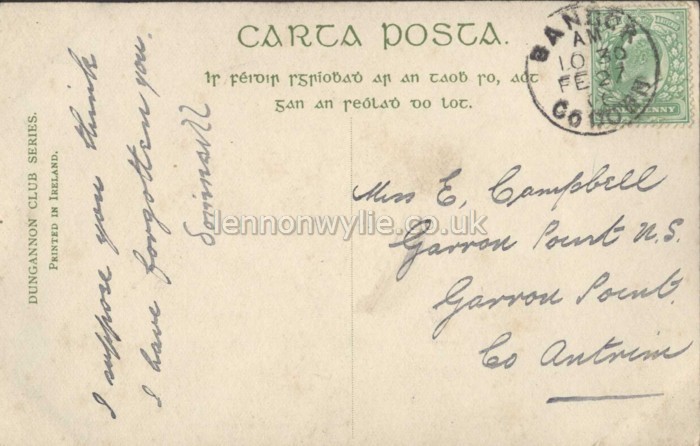 CARTA POSTA.
Ir féidir rgríobaḋ ar an taob ro, aċt
gan an reólaḋ do lot.
BANGOR
AM
10 30
FE 27
CO DOWN
PENNY
DUNGANNON CLUB SERIES.
PRINTED IN IRELAND.
I suppose you think
I have forgotten you.
lennonwylie.co.uk
Miss E. Campbell
Garron Point N.S.
Garron Point.
Co Antrim